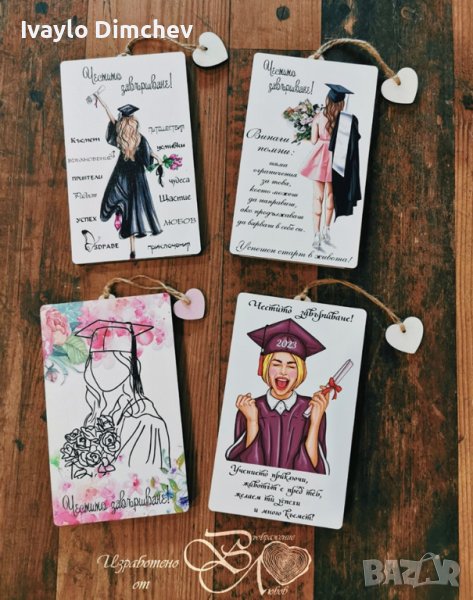 Ivaylo Dimchev
Честито завършване!
Късмет
пътешествия
вдъхновение
усмивки
приятели
чудеса
Радост
Щастие
успех
любов
Здраве
приключения
Честито
завършване!
Винаги
помни:
няма
ограничения
за това,
което можеш
да направиш,
ако продължаваш
да вярваш в себе си.
Успешен старт в живота!
Честито завършване!
Честито завършване!
2023
Учението приключи,
животът е пред теб,
желаем ти успехи
и много късмет!
Изработено
от
Въображение
Любов
BAZAR